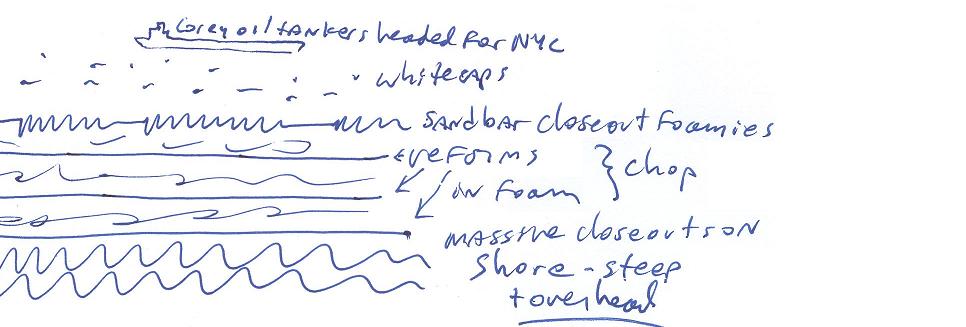 Grey oil tankers headed for NYC
whitecaps
sandbar closeout foamies
reforms
in foam } chop
massive closeouts on
shore - steep
+ overhead